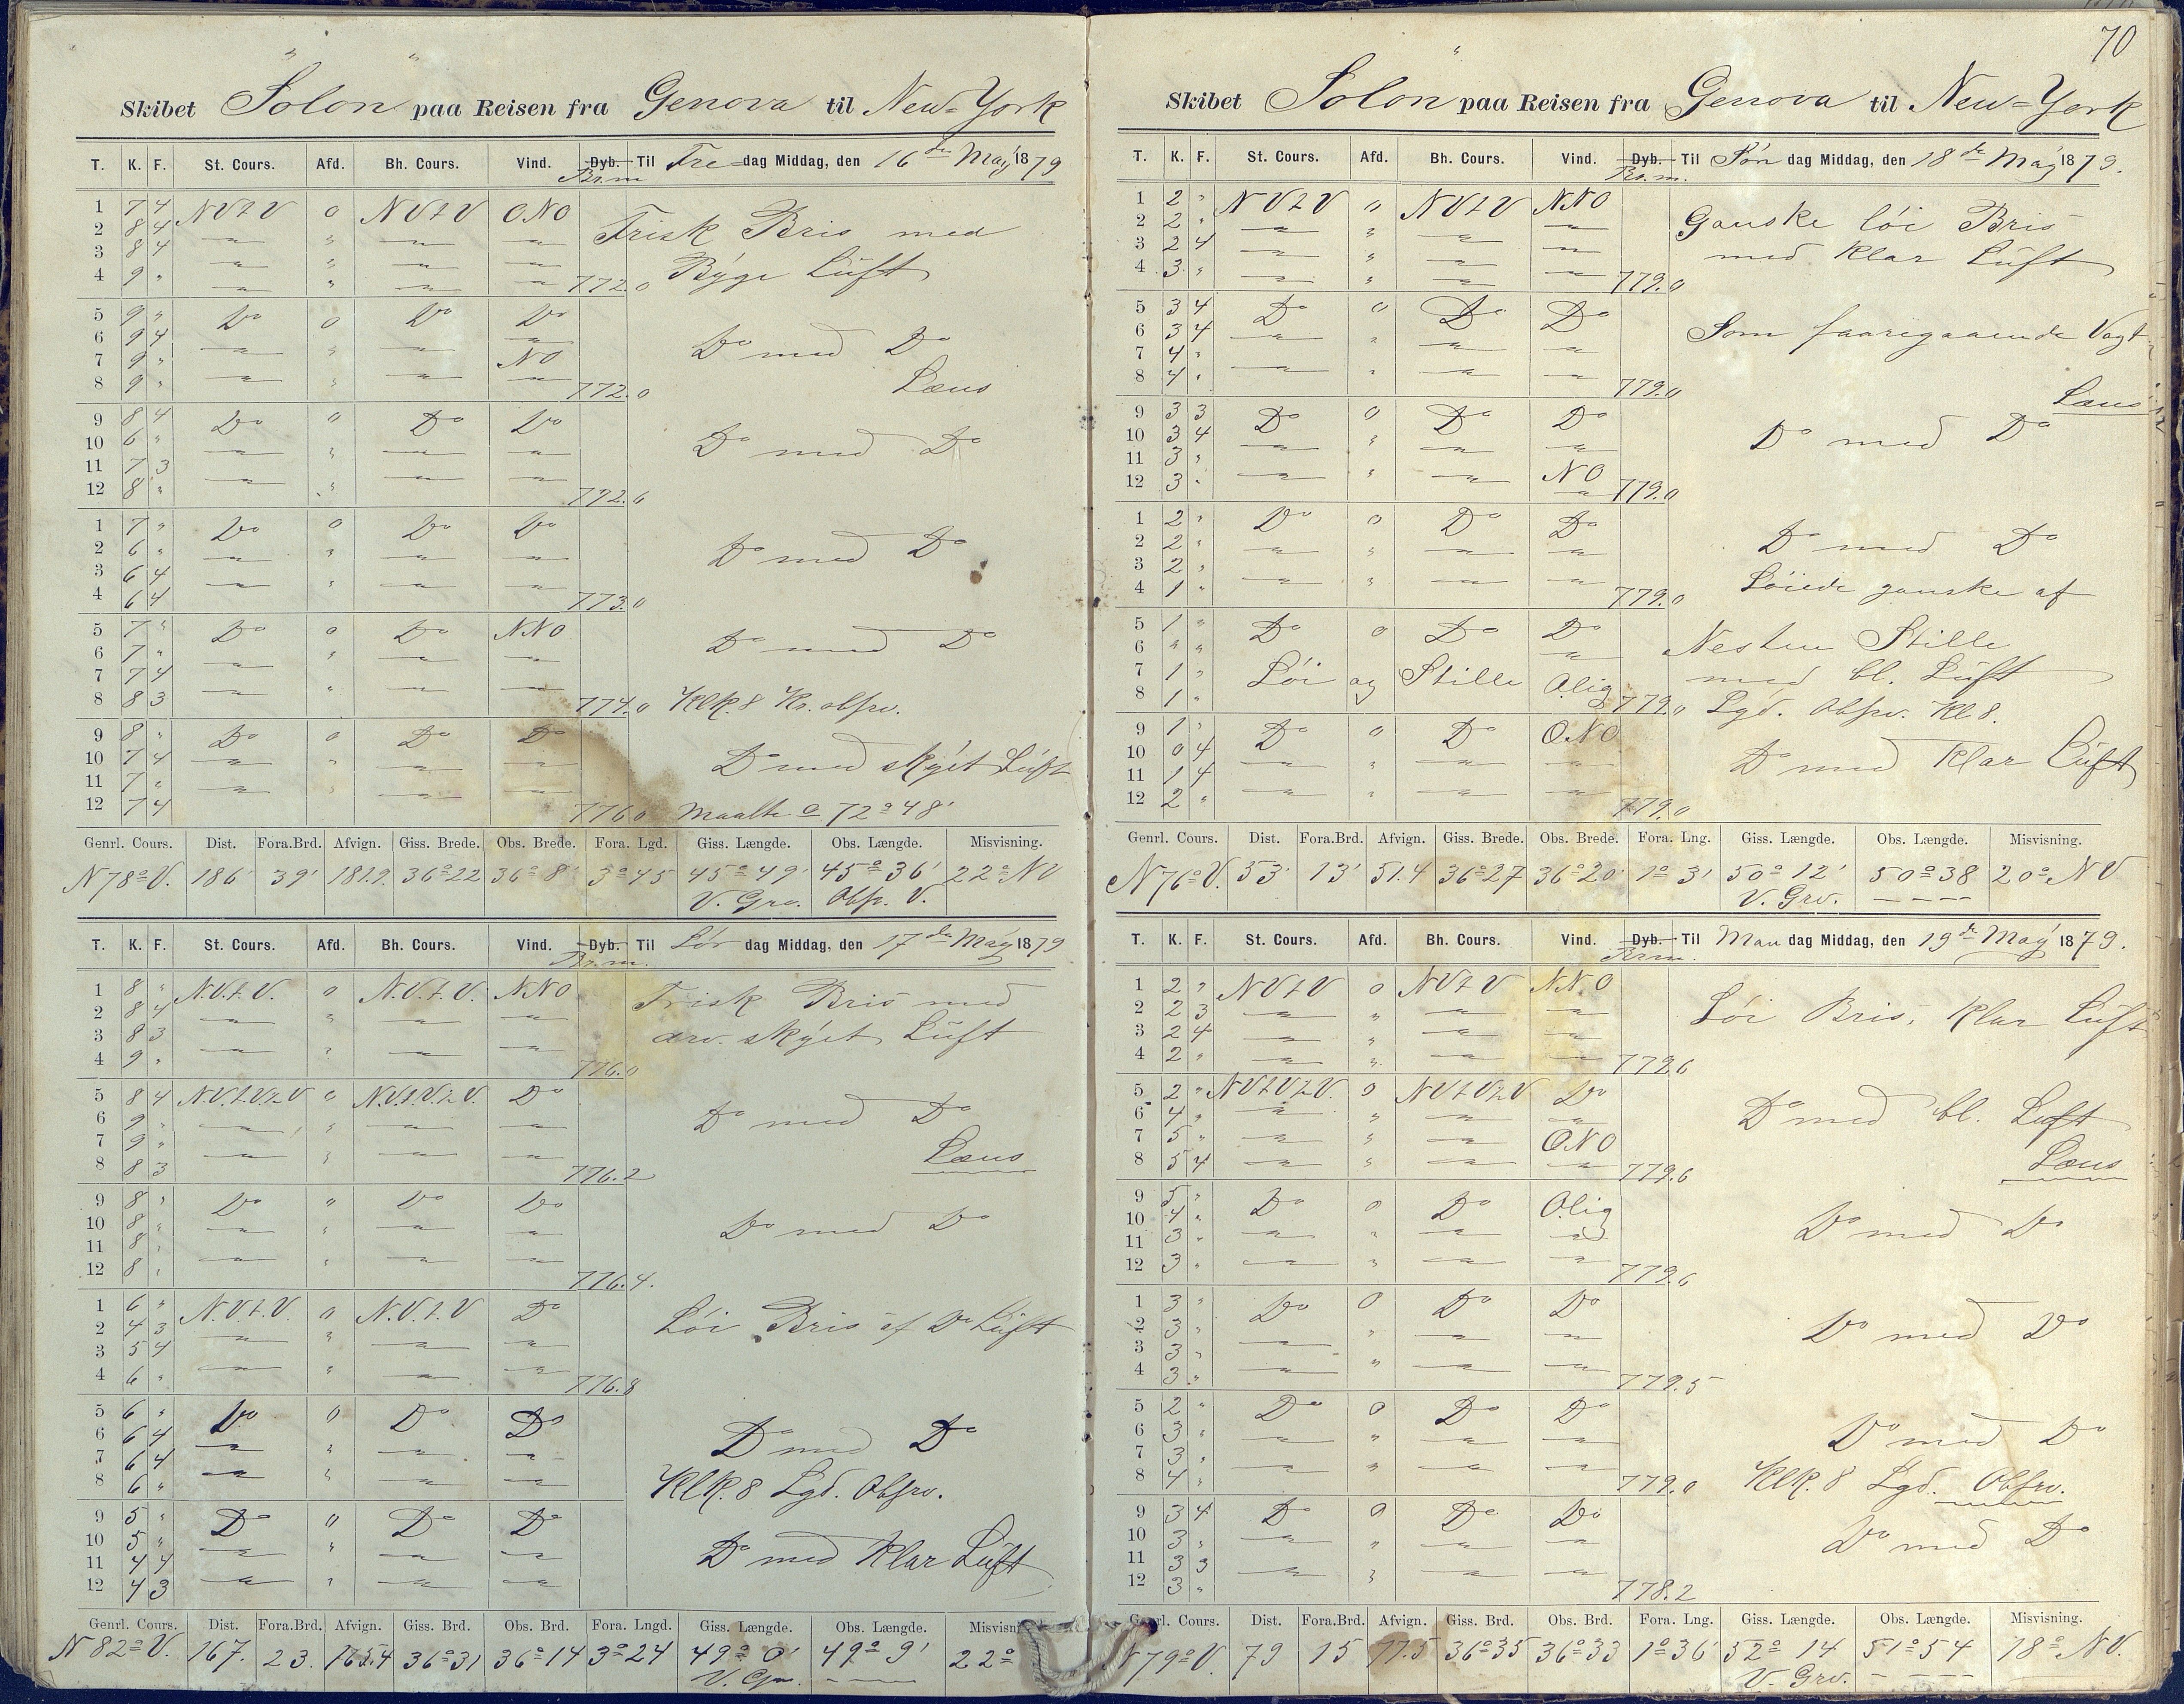 Skibet "Solon" paa Reisen fra Genova til New=York
T. K. F. St. Cours. Afd. Bh. Cours. Vind. Dyb. Br.m Til Fredag Middag, den 16de May 1879
1 7 4 NVtV 0 NVtV ONO Frisk Bris med
2 8 4 — " — —
3 8 4 — " — — Byge Luft
4 9 " — " — — 772.0
5 9 " Do 0 Do Do
6 9 4 — " — — Do med Do
7 9 " — " — NO
8 9 " — " — — 772.0 Læns
9 8 4 Do 0 Do Do
10 6 " — " — — Do med Do
11 7 3 — " — —
12 8 " — " — — 772.6
1 7 " Do 0 Do Do
2 6 " — " — — Do med Do
3 6 4 — " — —
4 6 4 773.0
5 7 " Do 0 Do NNO
6 7 " — " — — Do med Do
7 7 4 — " — —
8 8 3 774.0 Klk. 8 Kr. obsrv.
9 8 " Do 0 Do Do
10 7 4 — " — — Do med skyet Luft
11 7 " — " — —
12 7 4 776.0 Maalte 72° 48'
Genrl. Cours. Dist. Fora.Brd. Afvign. Giss. Brede. Obs. Brede. Fora. Lgd. Giss. Længde. Obs. Længde. Misvisning.
N78°V. 186' 39' 181.9 36°22 36°8' 3°45 45°49' 45°36' 22° NV
V. Grv. Obsr. V.
T. K. F. St. Cours. Afd. Bh. Cours. Vind. Dyb. Br.m. Til Lør dag Middag, den 17de May 1879
1 8 " N.V.t.V. 0 N.V.t.V. NNO Frisk Bris med
2 8 4 — " — —
3 8 3 — " — — skyet Luft
4 9 " 776.0
5 8 4 N.V.t.V.½V 0 N.V.t.V.½V. Do
6 9 " — " — — Do med Do
7 9 " — " — — Læns
8 8 3 776.2
9 8 " Do " Do Do
10 8 " — " — — Do med Do
11 8 " — " — —
12 8 " 776.4.
1 6 " N.V.t.V. 0 N.V.t.V Do
2 4 3 — " — — Løi Bris af Do Luft
3 5 4 — " — —
4 6 " 776.8
5 6 " Do 0 Do Do
6 6 4 — " — — Do med Do
7 6 4 — " — —
8 6 " Klk. 8 Lgd. Obsrv.
9 5 " Do " Do Do
10 5 " — " — — Do med Klar Luft
11 4 4 — " — —
12 4 3
Genrl. Cours. Dist. Fora.Brd. Afvign. Giss. Brd. Obs. Brd. Fora. Lngd. Giss. Længde. Obs. Længde. Misvisn
N82°V. 167. 23. 165.4 36°31 36°14 3°24 49° 0' 49° 9' 22°
V. Grv. — — —
70
Skibet "Solon" paa Reisen fra Genova til New=York
T. K. F. St. Cours. Afd. Bh. Cours. Vind. Dyb. Br.m. Til Søn dag Middag, den 18de May 1879.
1 2 " NVtV 0 NVtV NNO Ganske løi Bris
2 2 " — " — —
3 2 4 — " — — med Klar Luft
4 3 " — " — — 779.0
5 3 4 Do 0 Do Do
6 3 4 — " — — Som faaregaaende Vagt
7 4 " — " — —
8 4 " 779.0 Læns
9 3 3 Do 0 Do Do
10 3 4 — " — — Do med Do
11 3 " — " — NO
12 3 " — 779.0
1 2 " Do 0 Do Do
2 2 " — " — — Do med Do
3 2 " — " — —
4 1 " 779.0 Løiede ganske af
5 1 " Do 0 Do Do Nesten Stille
6 " " —
7 1 " Løi og Stille Olig med bl. Luft
8 1 " 779.0 Lgd. Obsrv. Kl 8.
9 1 " Do 0 Do ONO
10 0 4 — " — — Do med Klar Luft
11 1 4 — " — —
12 2 " 779.0
Genrl. Cours. Dist. Fora.Brd. Afvign. Giss. Brede. Obs. Brede. Fora. Lng. Giss. Længde. Obs. Længde. Misvisning.
N76°V. 53' 13' 51.4 36°27 36°20' 1° 3' 50° 12' 50°38 20° NV
V. Grv. — — —
T. K. F. St. Cours. Afd. Bh. Cours. Vind. Dyb. Br.m. Til Man dag Middag, den 19de May 1879.
1 2 " NVtV 0 NVtV NNO
2 2 3 — " — — Løi Bris, Klar Luft
3 2 4 — " — —
4 2 " — " — — 779.6
5 2 " NVtV½V. 0 NVtV½V Do
6 4 " — " — — Do med bl. Luft
7 5 " — " — ONO
8 5 4 — " — — 779.6 Læns
9 5 " Do 0 Do Olig
10 4 " — " — — Do med Do
11 3 " — " — —
12 3 " 779.6
1 3 " Do 0 Do Do
2 3 " — " — — Do med Do
3 3 " — " — —
4 3 " 779.5
5 2 " Do 0 Do Do
6 3 " — " — — Do med Do
7 3 " — " — —
8 4 " 779.0 Klk. 8 Lgd. Obsrv.
9 3 4 Do 0 Do Do
10 3 " — " — — Do med Do
11 3 3 — " —
12 3 " 778.2
Genrl. Cours. Dist. Fora.Brd. Afvign. Giss. Brd. Obs. Brd. Fora. Lng. Giss. Længde. Obs. Længde. Misvisning.
N79°V. 79 15 77.5 36°35 36°33 1°36' 52° 14 51°54 18° NV.
V. Grv. — — —